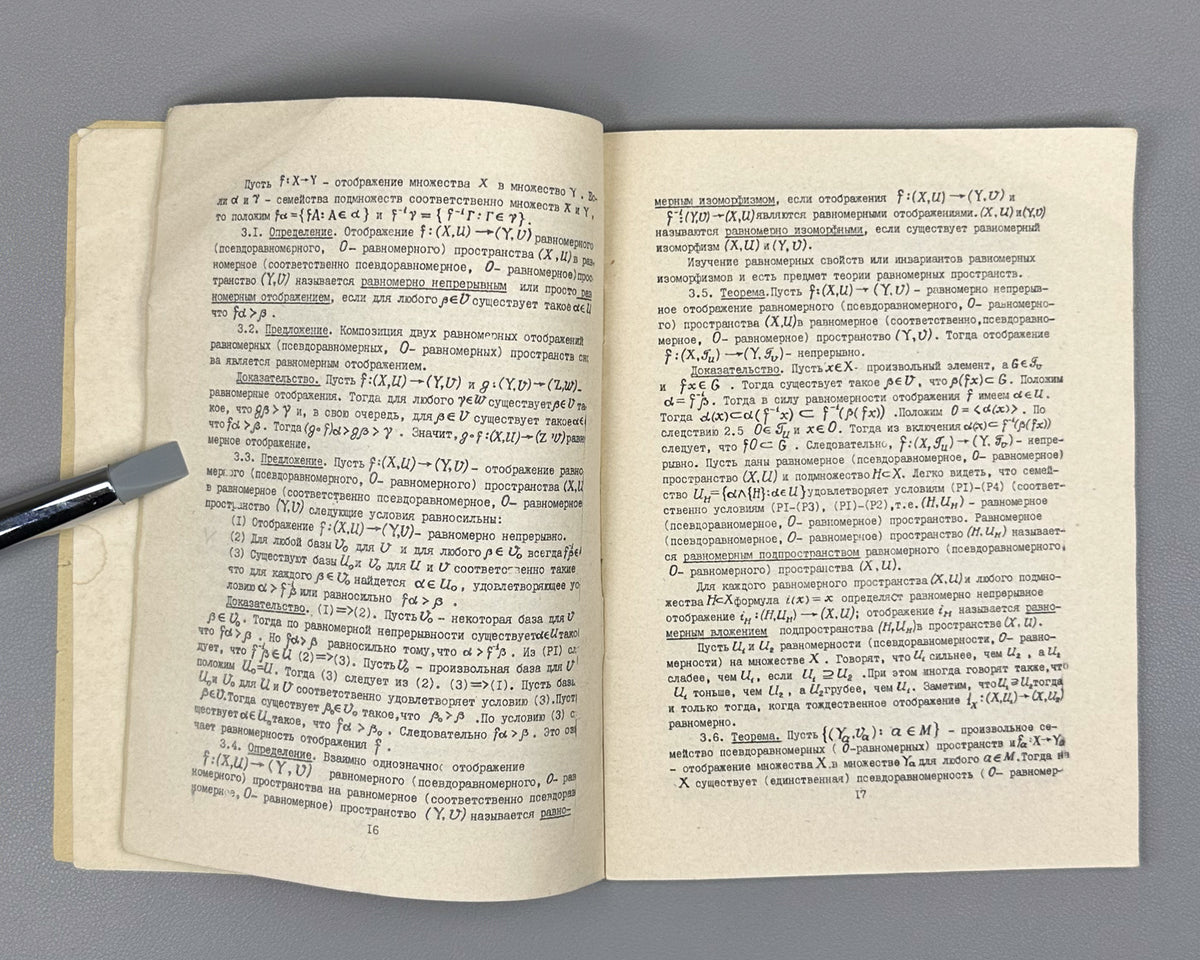 Пусть f:X→Y – отображение множества X в множество Y. Ес-
ли α и γ – семейства подмножеств соответственно множеств X и Y,
то положим fα={fA: A∈α} и f⁻¹γ={f⁻¹Γ: Γ∈γ}.
3.I. Определение. Отображение f:(X,U)→(Y,V) равномерного
(псевдоравномерного, O– равномерного) пространства (X,U) в рав-
номерное (соответственно псевдоравномерное, O– равномерное) прос-
транство (Y,V) называется равномерно непрерывным или просто рав
номерным отображением, если для любого β∈V существует такое α∈U
что fα>β.
3.2. Предложение. Композиция двух равномерных отображений
равномерных (псевдоравномерных, O– равномерных) пространств сно
ва является равномерным отображением.
Доказательство. Пусть f:(X,U)→(Y,V) и g:(Y,V)→(Z,W)–
равномерные отображения. Тогда для любого γ∈W существует β∈V та
кое, что gβ>γ и, в свою очередь, для β∈V существует такое α∈
что fα>β. Тогда (g∘f)α>gβ>γ. Значит, g∘f:(X,U)→(Z,W) равно
мерное отображение.
3.3. Предложение. Пусть f:(X,U)→(Y,V)– отображение равно
мерного (псевдоравномерного, O– равномерного) пространства (X,U
в равномерное (соответственно псевдоравномерное, O– равномерное
пространство (Y,V) следующие условия равносильны:
(I) Отображение f:(X,U)→(Y,V)– равномерно непрерывно.
(2) Для любой базы V₀ для V и для любого β∈V₀ всегда f⁻¹β∈
(3) Существуют базы U₀ и V₀ для U и V соответственно такие
что для каждого β∈V₀ найдется α∈U₀, удовлетворяющее ус
ловию α>f⁻¹β или равносильно fα>β.
Доказательство. (I)=>(2). Пусть V₀ – некоторая база для V
β∈V₀. Тогда по равномерной непрерывности существует α∈U такое
что fα>β. Но fα>β равносильно тому, что α>f⁻¹β. Из (PI) сле
дует, что f⁻¹β∈U (2)=>(3). Пусть V₀ – произвольная база для V
положим U₀=U. Тогда (3) следует из (2). (3)=>(I). Пусть базы
U₀ и V₀ для U и V соответственно удовлетворяет условию (3). Пусть
β∈V. Тогда существует β₀∈V₀ такое, что β₀>β. По условию (3) с
ществует α∈U₀ такое, что fα>β₀. Следовательно fα>β. Это озн
чает равномерность отображения f.
3.4. Определение. Взаимно однозначное отображение
f:(X,U)→(Y,V) равномерного (псевдоравномерного, O– рав
номерного) пространства на равномерное (соответственно псевдорав
номерное, O– равномерное) пространство (Y,V) называется равно-
I6
мерным изоморфизмом, если отображения f:(X,U)→(Y,V) и
f⁻¹:(Y,V)→(X,U) являются равномерными отображениями. (X,U) и (Y,V)
называются равномерно изоморфными, если существует равномерный
изоморфизм (X,U) и (Y,V).
Изучение равномерных свойств или инвариантов равномерных
изоморфизмов и есть предмет теории равномерных пространств.
3.5. Теорема. Пусть f:(X,U)→(Y,V) – равномерно непрерыв-
ное отображение равномерного (псевдоравномерного, O– равномерно-
го) пространства (X,U) в равномерное (соответственно, псевдоравно-
мерное, O– равномерное) пространство (Y,V). Тогда отображение
f:(X,𝒯ᵤ)→(Y,𝒯ᵥ)– непрерывно.
Доказательство. Пусть x∈X– произвольный элемент, а G∈𝒯ᵥ
и fx∈G. Тогда существует такое β∈V, что β(fx)⊂G. Положим
α=f⁻¹β. Тогда в силу равномерности отображения f имеем α∈U.
Тогда α(x)⊂α(f⁻¹x)⊂f⁻¹(β(fx)). Положим O=<α(x)>. По
следствию 2.5 O∈𝒯ᵤ и x∈O. Тогда из включения α(x)⊂f⁻¹(β(fx))
следует, что fO⊂G. Следовательно, f:(X,𝒯ᵤ)→(Y,𝒯ᵥ)– непре-
рывно. Пусть даны равномерное (псевдоравномерное, O– равномерное)
пространство (X,U) и подмножество H⊂X. Легко видеть, что семей-
ство U_H={α∧{H}:α∈U} удовлетворяет условиям (PI)-(P4) (соответ-
ственно условиям (PI-(P3), (PI)-(P2), т.е. (H,U_H) – равномерное
(псевдоравномерное, O– равномерное) пространство. Равномерное
(псевдоравномерное, O– равномерное) пространство (H,U_H) называет-
ся равномерным подпространством равномерного (псевдоравномерного,
O– равномерного) пространства (X,U).
Для каждого равномерного пространства (X,U) и любого подмно-
жества H⊂X формула i(x)=x определяет равномерно непрерывное
отображение i_H:(H,U_H)→(X,U); отображение i_H называется равно-
мерным вложением подпространства (H,U_H) в пространстве (X,U).
Пусть U₁ и U₂ равномерности (псевдоравномерности, O– равно-
мерности) на множестве X. Говорят, что U₁ сильнее, чем U₂, а U₂
слабее, чем U₁, если U₁⊇U₂. При этом иногда говорят также, что
U₁ тоньше, чем U₂, а U₂ грубее, чем U₁. Заметим, что U₁⊇U₂ тогда
и только тогда, когда тождественное отображение i_X:(X,U₁)→(X,U₂)
равномерно.
3.6. Теорема. Пусть {(Yₐ,Vₐ): a∈M} – произвольное се-
мейство псевдоравномерных ( O-равномерных) пространств и fₐ:X→Yₐ
– отображение множества X в множестве Yₐ для любого a∈M. Тогда на
X существует (единственная) псевдоравномерность (O– равномер-
I7